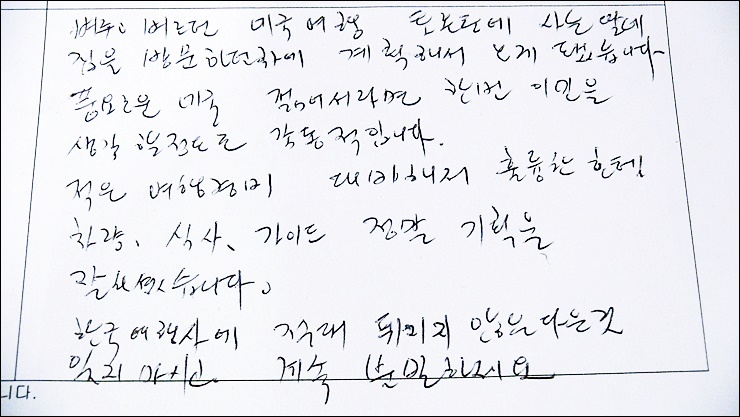 벼루고 벼르던 미국여행 토론토에 사는 딸네
집을 방문하던차에 계획해서 오게 됐습니다
풍요로운 미국 젊어서라면 한번 이민을
생각 할정도로 감동적입니다.
적은 여행경비 대비해서 훌륭한 호텔
차량, 식사, 가이드 정말 기획을
잘하셨습니다.
한국여행사에 절대 뒤지지 않는다는것
잊지마시고 계속 분발하세요
니다.